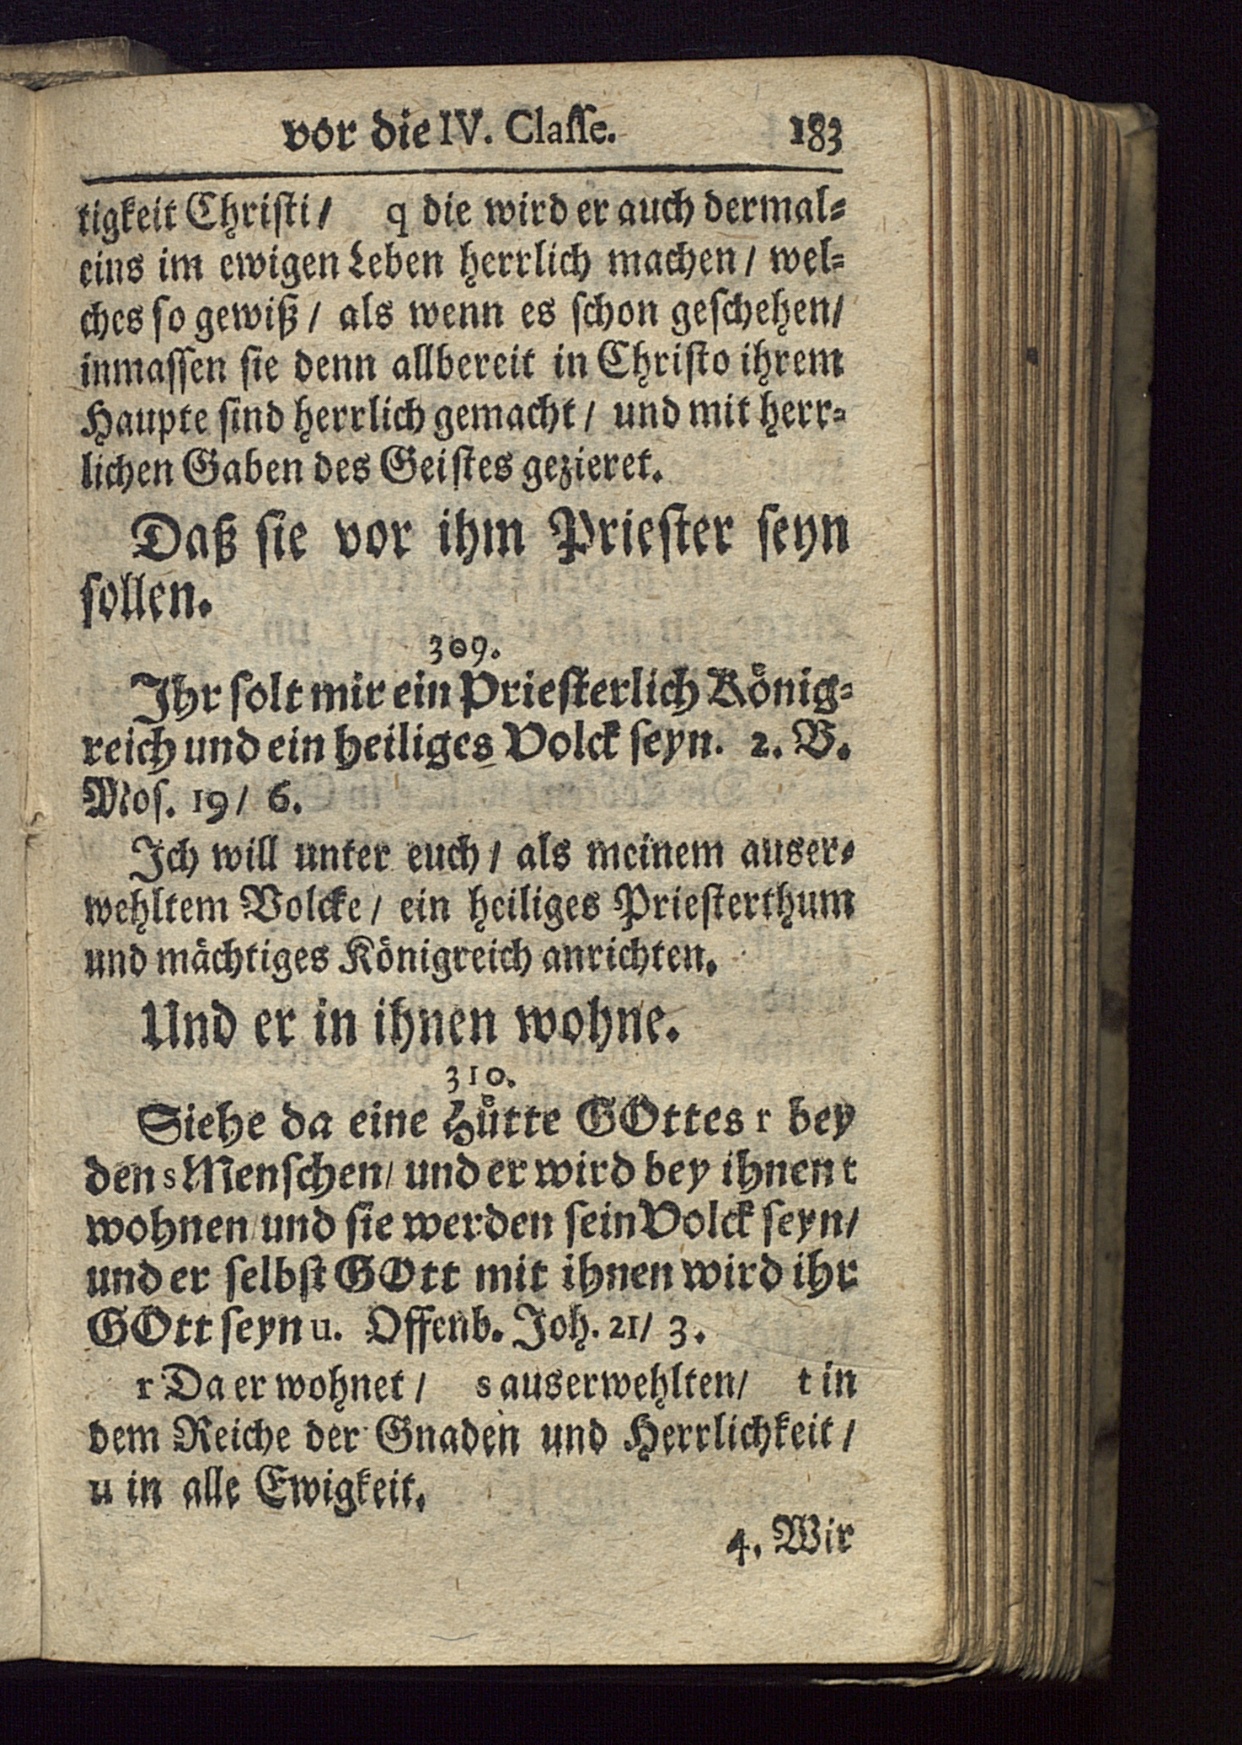 vor die IV. Classe. 183
tigkeit Christi/ q die wird er auch dermal=
eins im ewigen Leben herrlich machen/ wel=
ches so gewiß/ als wenn es schon geschehen/
inmassen sie denn allbereit in Christo ihrem
Haupte sind herrlich gemacht/ und mit herr=
lichen Gaben des Geistes gezieret.
Daß sie vor ihm Priester seyn
sollen.
309.
Ihr solt mir ein Priesterlich Koͤnig=
reich und ein heiliges Volck seyn. 2. B.
Mos. 19/ 6.
Ich will unter euch/ als meinem auser=
wehltem Volcke/ ein heiliges Priesterthum
und maͤchtiges Koͤnigreich anrichten.
Und er in ihnen wohne.
310.
Siehe da eine Huͤtte GOttes r bey
den s Menschen/ und er wird bey ihnen t
wohnen/ und sie werden sein Volck seyn/
und er selbst GOtt mit ihnen wird ihr
GOtt seyn u. Offenb. Joh. 21/ 3.
r Da er wohnet/ s auserwehlten/ t in
dem Reiche der Gnaden und Herrlichkeit/
u in alle Ewigkeit.
4. Wir